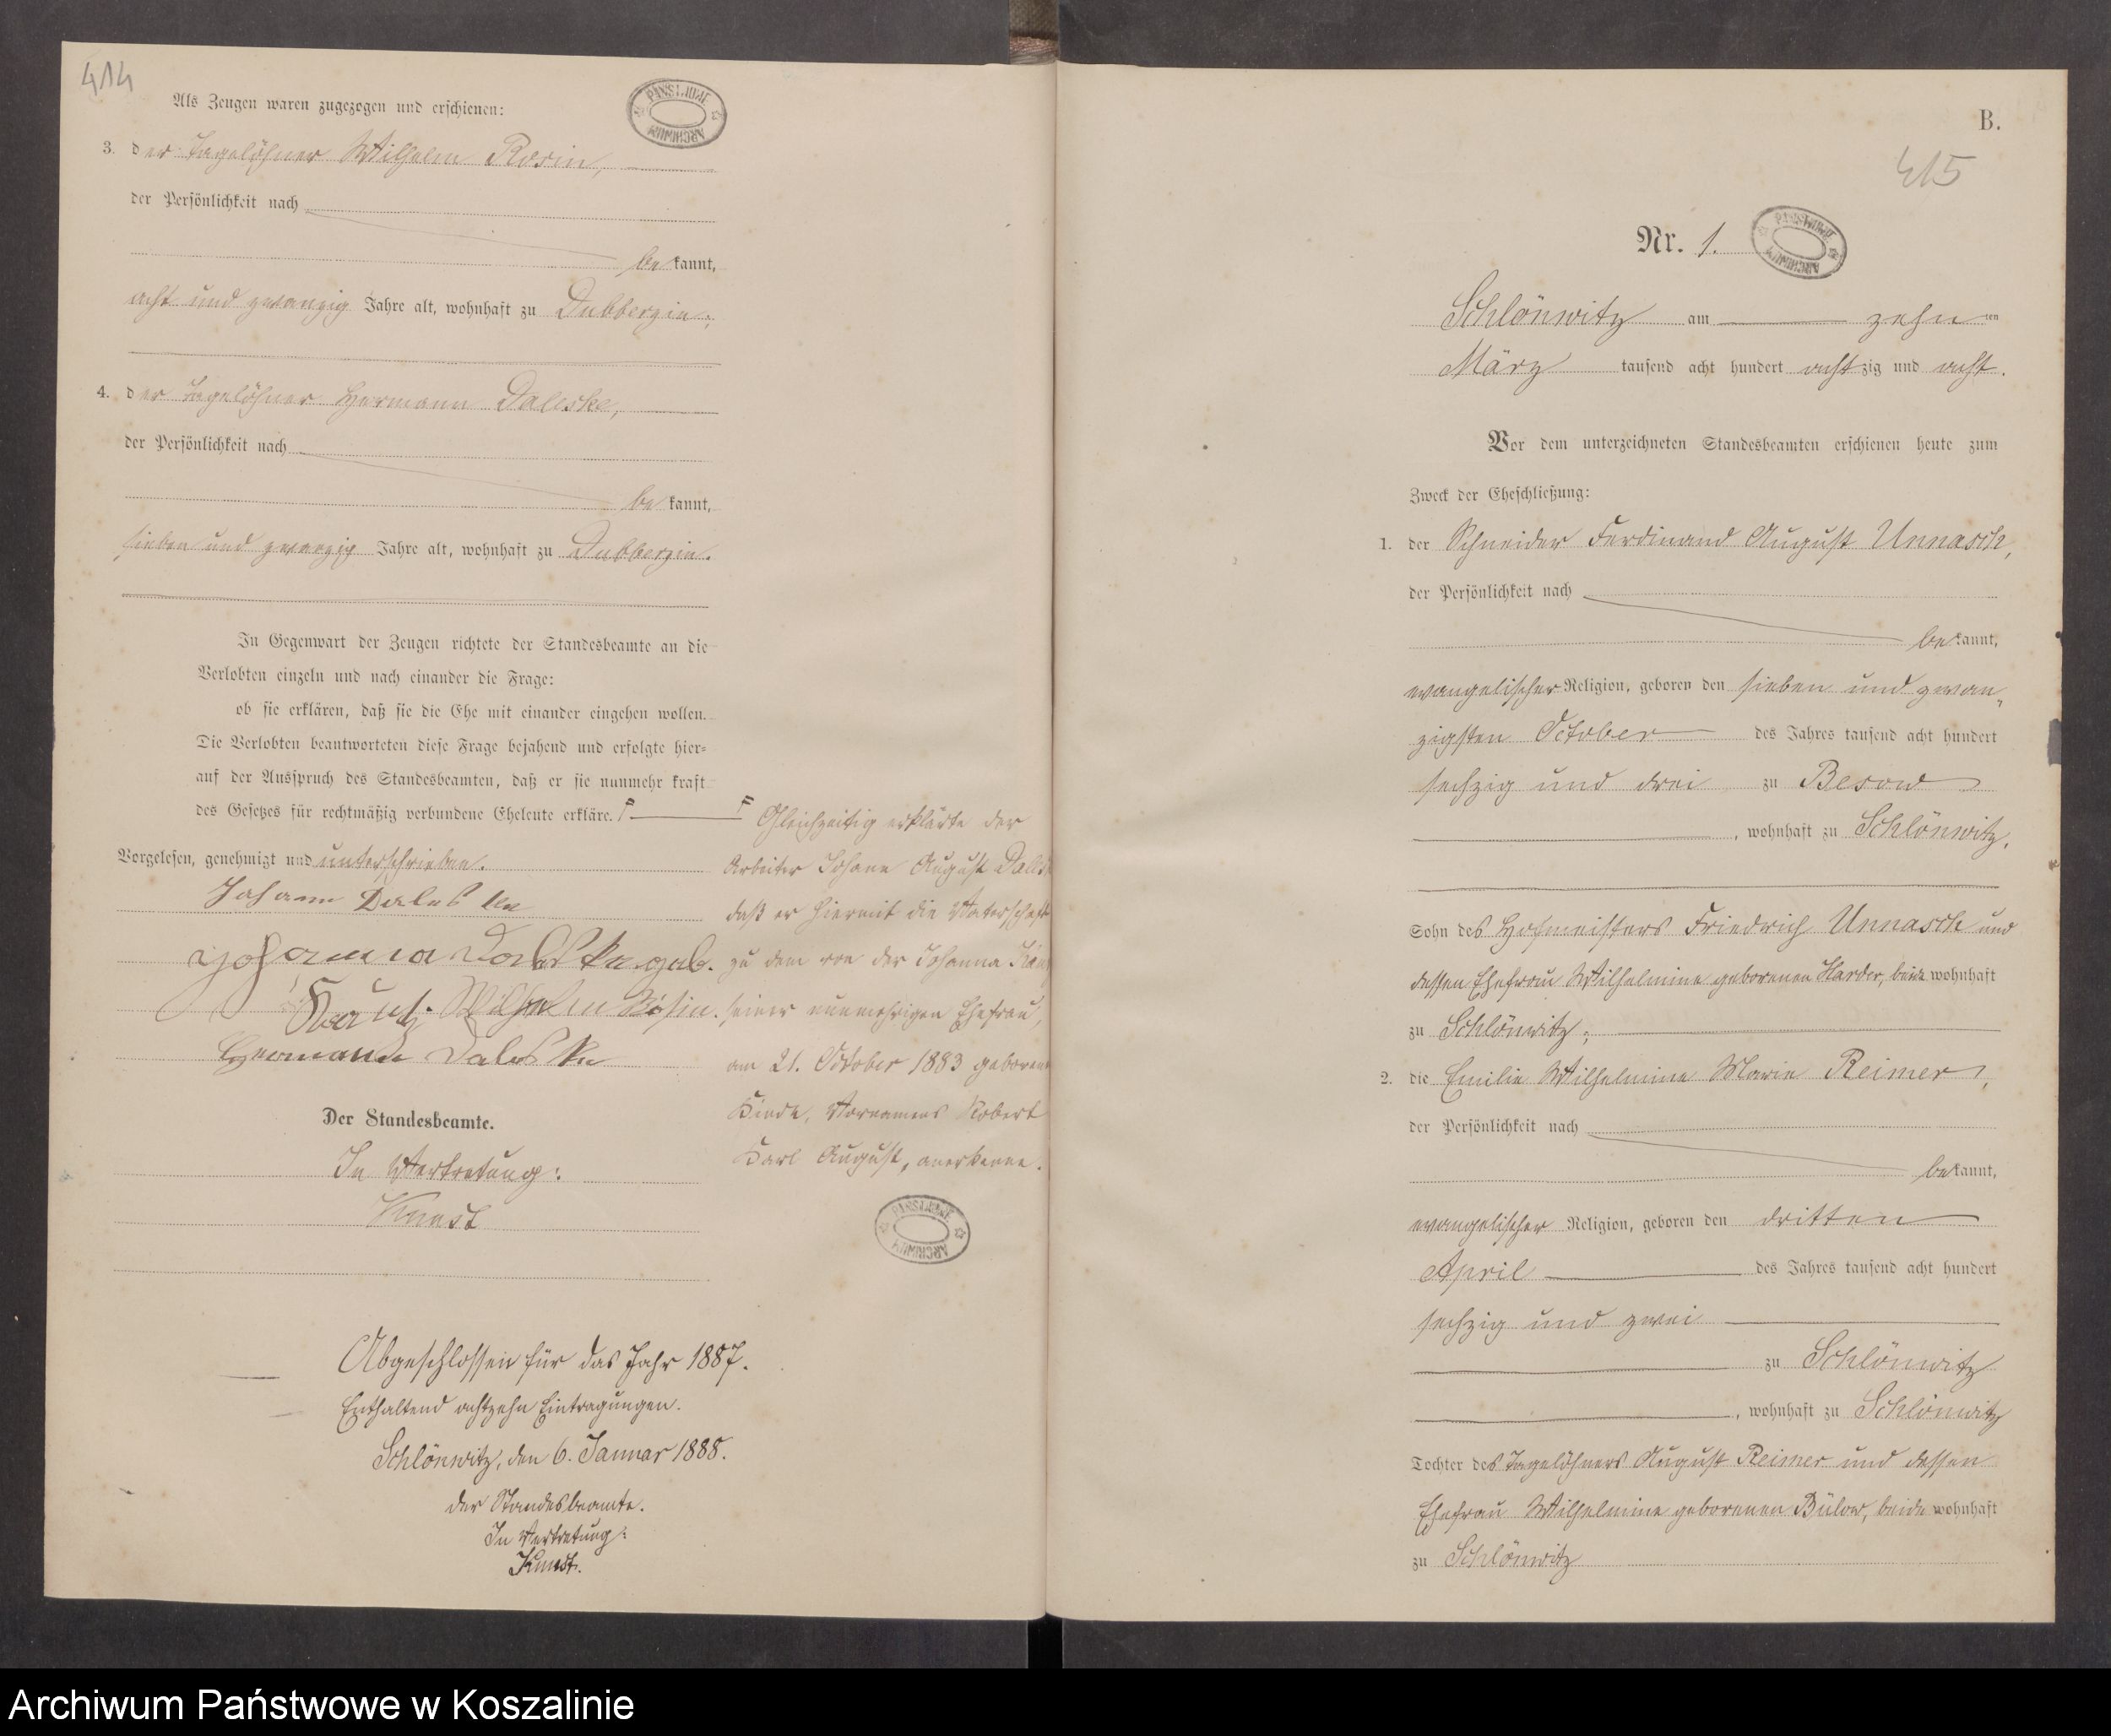 414
Als Zeugen waren zugezogen und erschienen:
PAŃSTWOWE ARCHIWUM
3. der Tagelöhner Wilhelm Rosin,
der Persönlichkeit nach
be kannt,
acht und zwanzig Jahre alt, wohnhaft zu Dubberzin;
4. der Tagelöhner Hermann Daleske,
der Persönlichkeit nach
be kannt,
sieben und zwanzig Jahre alt, wohnhaft zu Dubberzin.
In Gegenwart der Zeugen richtete der Standesbeamte an die
Verlobten einzeln und nach einander die Frage:
ob sie erklären, daß sie die Ehe mit einander eingehen wollen.
Die Verlobten beantworteten diese Frage bejahend und erfolgte hier-
auf der Ausspruch des Standesbeamten, daß er sie nunmehr kraft
des Gesetzes für rechtmäßig verbundene Eheleute erkläre.
Vorgelesen, genehmigt und unterschrieben.
Johann Daleske
Johanna Daleske geb.
Wilhelm Rosin.
Hermann Daleske
Gleichzeitig erklärte der
Arbeiter Johann August
daß er hiermit die Vaterschaft
zu dem von der Johanna
seiner nunmehrigen Ehefrau,
am 21. October 1883 geborenen
Kinde, Vornamens Robert
Karl August, anerkenne.
PAŃSTWOWE ARCHIWUM
Der Standesbeamte.
In Vertretung:
Kunst
Abgeschlossen für das Jahr 1887.
Enthaltend achtzehn Eintragungen.
Schlönwitz, den 6. Januar 1888.
der Standesbeamte.
In Vertretung:
Kunst.
B.
415
Nr. 1.
PAŃSTWOWE ARCHIWUM
Schlönwitz am zehn ten
März tausend acht hundert achtzig und acht.
Vor dem unterzeichneten Standesbeamten erschienen heute zum
Zweck der Eheschließung:
1. der Schneider Ferdinand August Unnasch,
der Persönlichkeit nach
be kannt,
evangelischer Religion, geboren den sieben und zwan-
zigsten October des Jahres tausend acht hundert
sechzig und drei zu Besow
, wohnhaft zu Schlönwitz,
Sohn des Hofmeisters Friedrich Unnasch und
dessen Ehefrau Wilhelmine geborenen Harder, beide wohnhaft
zu Schlönwitz;
2. die Emilie Wilhelmine Marie Reimer,
der Persönlichkeit nach
be kannt,
evangelischer Religion, geboren den dritten
April des Jahres tausend acht hundert
sechzig und zwei
zu Schlönwitz
, wohnhaft zu Schlönwitz
Tochter des Tagelöhners August Reimer und dessen
Ehefrau Wilhelmine geborenen Bülow, beide wohnhaft
zu Schlönwitz
Archiwum Państwowe w Koszalinie